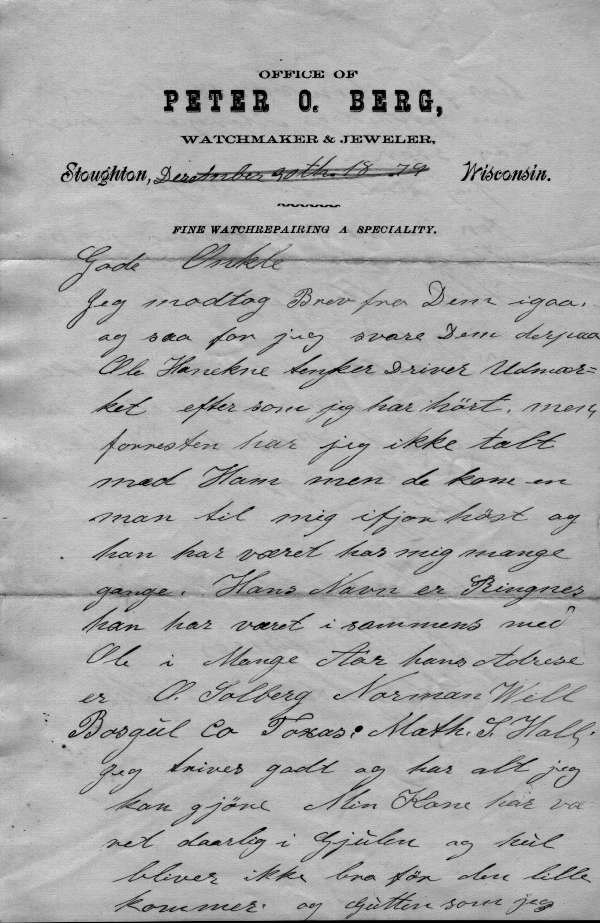 OFFICE OF
PETER O. BERG,
WATCHMAKER & JEWELER,
Stoughton, December 30th. 1879 Wisconsin.
FINE WATCHREPAIRING A SPECIALITY.
Gode Onkle
Jeg modtog Brev fra Dem igaa.
og saa for jeg svare Dem derpaa
Ole Hanekne tenker Driver Udmær=
ket efter som jeg har hört. men,
forresten har jeg ikke talt
med Ham men de kom en
man til mig ifjor höst og
han har været hos mig mange
gange. Hans Navn er Ringnes
han har været i sammens med
Ole i Mange Aar hans Adrese
er O. Solberg Norman Will
Bosqül Co Toxas: Math. S. Hall.
jeg trives godt og har alt jeg
kan gjöre Min Kone har væ
ret daarlig i Gjülen og hül
bliver ikke bra för den lille
kommer. og Gütten som jeg